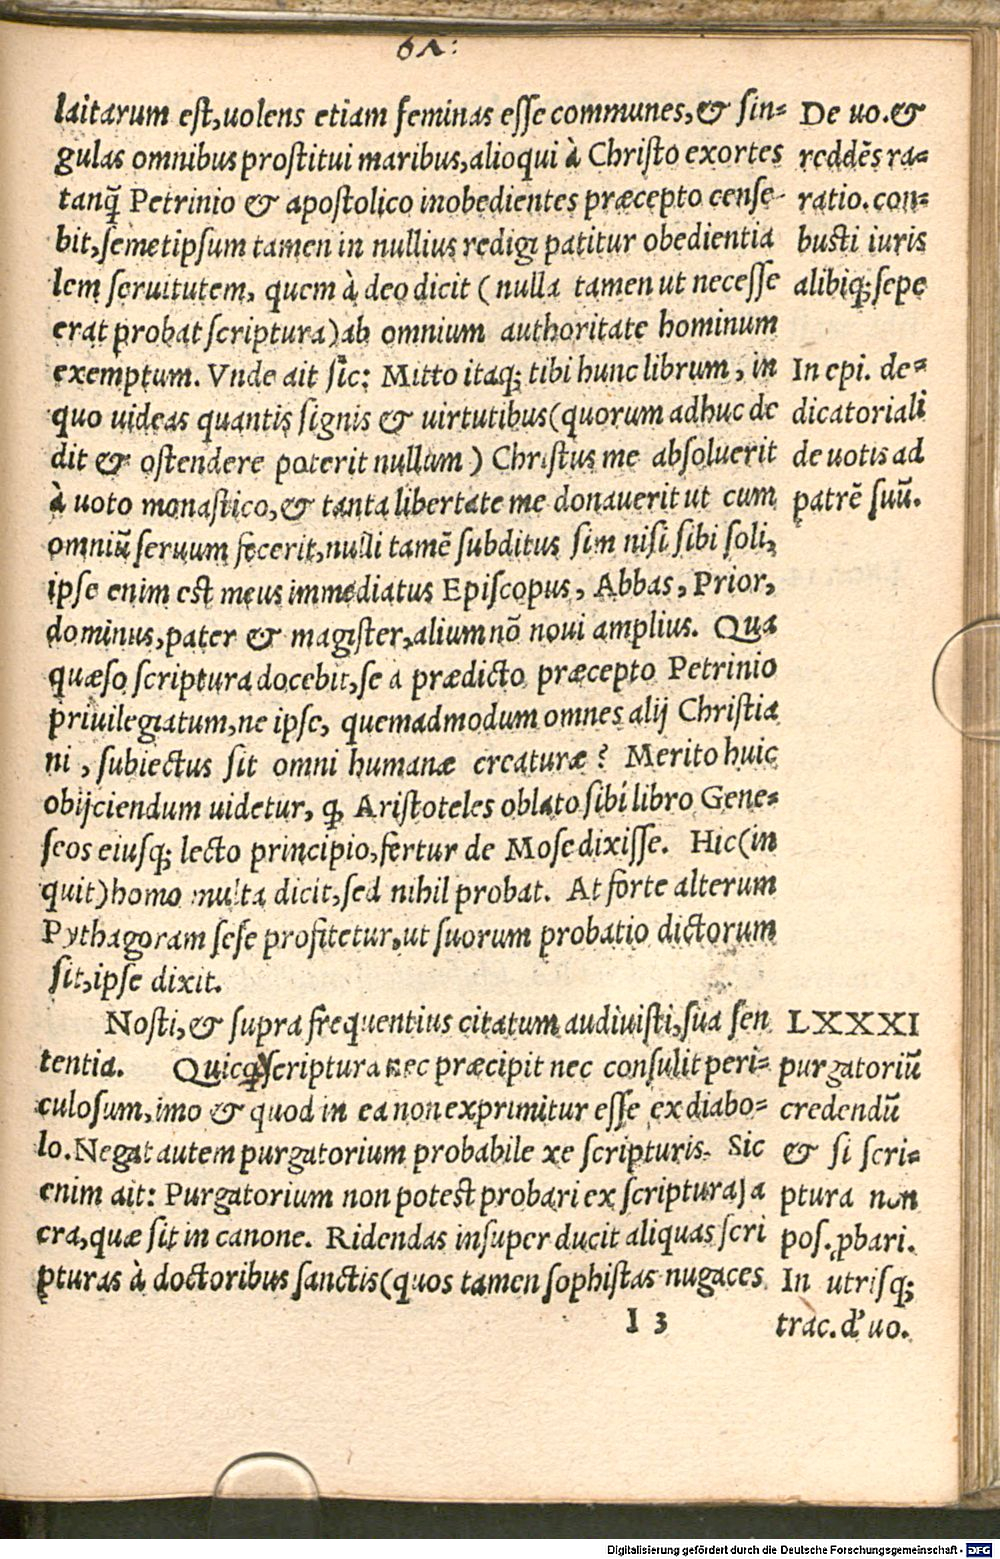 laitarum est,uolens etiam feminas esse communes,& sin-
gulas omnibus prostitui maribus,alioqui à Christo exortes
tanq̃ Petrinio & apostolico inobedientes præcepto cense-
bit,semetipsum tamen in nullius redigi patitur obedientia
lem seruitutem, quem à deo dicit ( nulla tamen ut necesse
erat probat scriptura)ab omnium authoritate hominum
exemptum. Vnde ait sic: Mitto itaq; tibi hunc librum, in
quo uideas quantis signis & uirtutibus(quorum adhuc de
dit & ostendere poterit nullum ) Christus me absoluerit
à uoto monastico,& tanta libertate me donauerit ut cum
omniũ seruum fecerit,nulli tamē subditus sim nisi sibi soli,
ipse enim est meus immediatus Episcopus, Abbas, Prior,
dominus,pater & magister,alium nō noui amplius. Qua
quæso scriptura docebit,se a prædicto præcepto Petrinio
priuilegiatum,ne ipse, quemadmodum omnes alij Christia
ni , subiectus sit omni humanæ creaturæ? Merito huic
obijciendum uidetur, ꝙ Aristoteles oblato sibi libro Gene-
seos eiusq; lecto principio,fertur de Mose dixisse. Hic(in
quit)homo multa dicit,sed nihil probat. At forte alterum
Pythagoram sese profitetur,ut suorum probatio dictorum
sit,ipse dixit.
Nosti,& supra frequentius citatum audiuisti,sua sen
tentia. Quicq̃ scriptura nec præcipit nec consulit peri-
culosum,imo & quod in ea non exprimitur esse ex diabo-
lo.Negat autem purgatorium probabile xe scripturis. Sic
enim ait: Purgatorium non potest probari ex scriptura sa
cra,quæ sit in canone. Ridendas insuper ducit aliquas scri
pturas à doctoribus sanctis(quos tamen sophistas nugaces
I 3
De uo.&
reddēs ra-
ratio.con-
busti iuris
alibiq;sepe
In epi. de-
dicatoriali
de uotis ad
patrē suũ.
LXXXI
purgatoriũ
credendũ
& si scri-
ptura non
pos.ꝓbari.
In utrisq;
trac.d' uo.
Digitalisierung gefördert durch die Deutsche Forschungsgemeinschaft - DFG